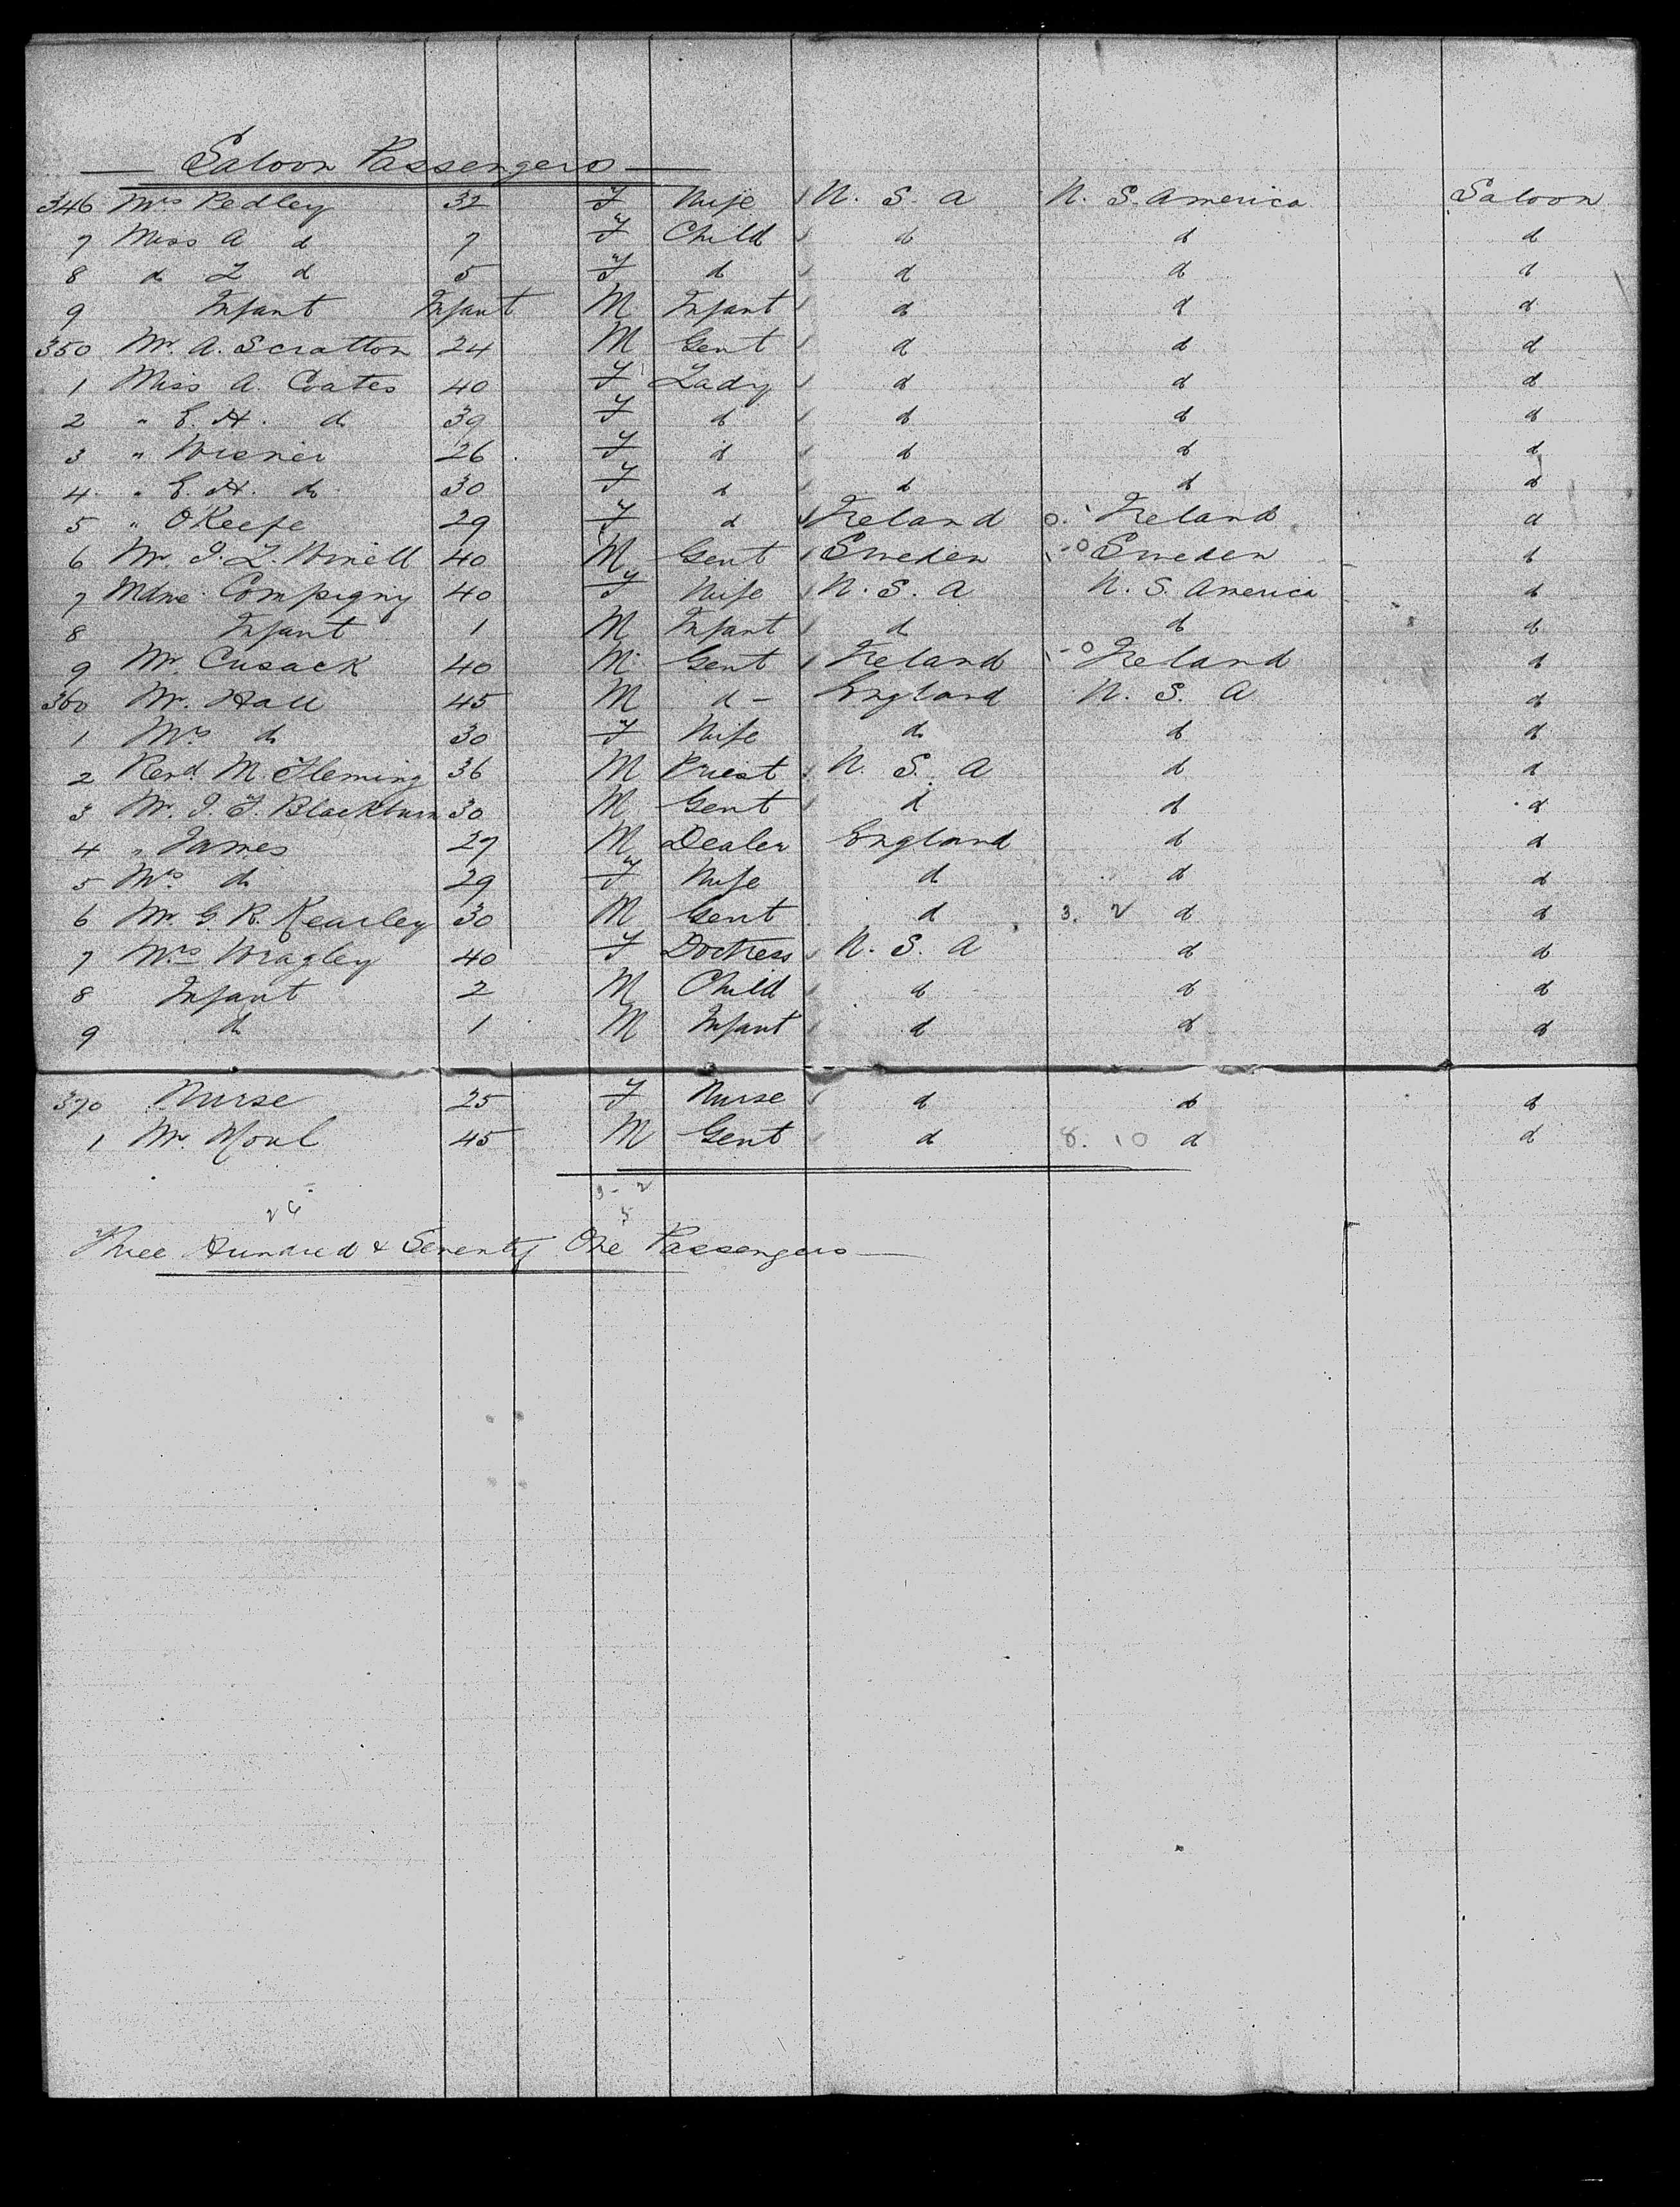 Saloon Passengers
346 Mrs Pedley 32 F Wife U. S. A U. S. America Saloon
7 Miss A d 7 F Child d d d
8 d L d 5 F d d d d
9 Infant Infant M Infant d d d
350 Mr. A. Scratton 24 M Gent d d d
1 Miss A. Coates 40 F Lady d d d
2 " E. H. d 39 F d d d d
3 " 26 F d d d d
4 " E. H. d 30 F d d d d
5 " O'Keefe 29 F d Ireland Ireland d
6 Mr. J. L. 40 M Gent Sweden Sweden d
7 Mdme Compigny 40 F Wife U. S. A U. S. America d
8 Infant 1 M Infant d d d
9 Mr. Cusack 40 M Gent Ireland Ireland d
360 Mr. Hall 45 M d - England U. S. A d
1 Mrs d 30 F Wife d d d
2 Revd. M. Fleming 36 M Priest U. S. A d d
3 Mr. J. F. Blackburn 30 M Gent d d d
4 " James 27 M Dealer England d d
5 Mrs. d 29 F Wife d d d
6 Mr. G. R. Kearley 30 M Gent d 3. 2 d d
7 Mrs Wragley 40 F Doctress U. S. A d d
8 Infant 2 M Child d d d
9 d 1 M Infant d d d
370 Nurse 25 F Nurse d d d
1 Mr. 45 M Gent d 8. 10 d d
Three Hundred & Seventy One Passengers